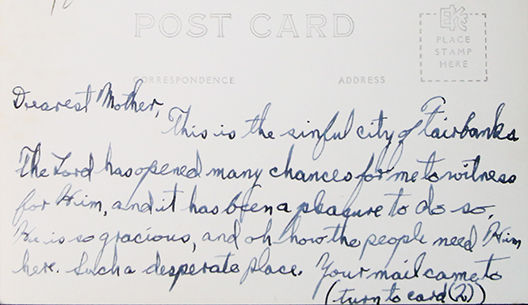 POST CARD
EKC
PLACE
STAMP
HERE
CORRESPONDENCE
ADDRESS
Dearest Mother,
This is the sinful city of Fairbanks
The Lord has opened many chances for me to witness
for Him, and it has been a pleasure to do so.
He is so gracious, and oh how the people need Him
here. Such a desperate place. Your mail came to
(turn to card (2))